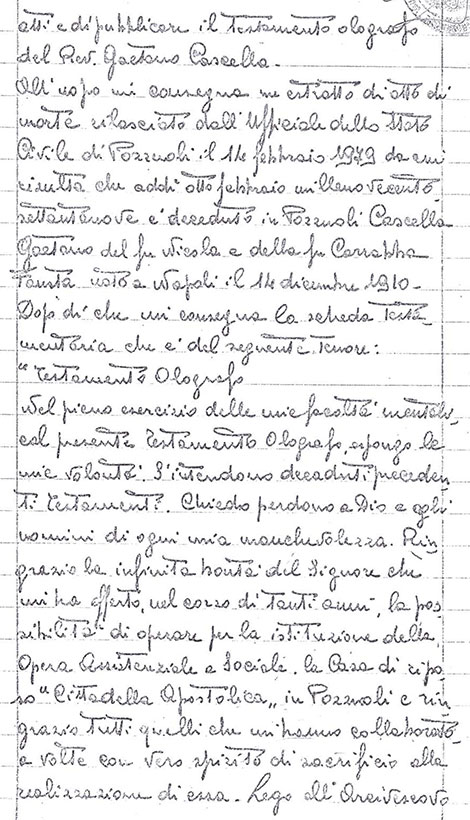 atti e di pubblicare il testamento olografo
del Rev. Gaetano Cascella.
All'uopo mi consegna un estratto di atto di
morte rilasciato dall'Ufficiale dello Stato
Civile di Pozzuoli il 14 febbraio 1979 da cui
risulta che addì otto febbraio millenovecento-
settantanove e' deceduto in Pozzuoli Cascella
Gaetano del fu Nicola e della fu Carrabba
Fausta nato a Napoli il 14 dicembre 1910-
Dopo di che mi consegna la scheda testa-
mentaria che e' del seguente tenore:
"Testamento Olografo
Nel pieno esercizio delle mie facoltà mentali,
col presente Testamento Olografo, espongo le
mie volontà. S'intendono decaduti preceden
ti testamenti. Chiedo perdono a Dio e agli
uomini di ogni mia manchevolezza. Rin
grazio la infinita bontà del Signore che
mi ha offerto, nel corso di tanti anni, la pos-
sibilità di operare per la istituzione della
Opera Assistenziale e Sociale, la Casa di ripo
so "Cittadella Apostolica,, in Pozzuoli e rin
grazio tutti quelli che mi hanno collaborato,
a volte con vero spirito di sacrificio alla
realizzazione di essa. Lego all'Arcivescovo